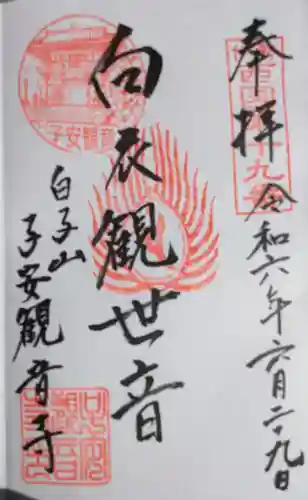 奉拝
令和六年六月二十九日
白衣観世音
白子山
子安観音寺
子安観音